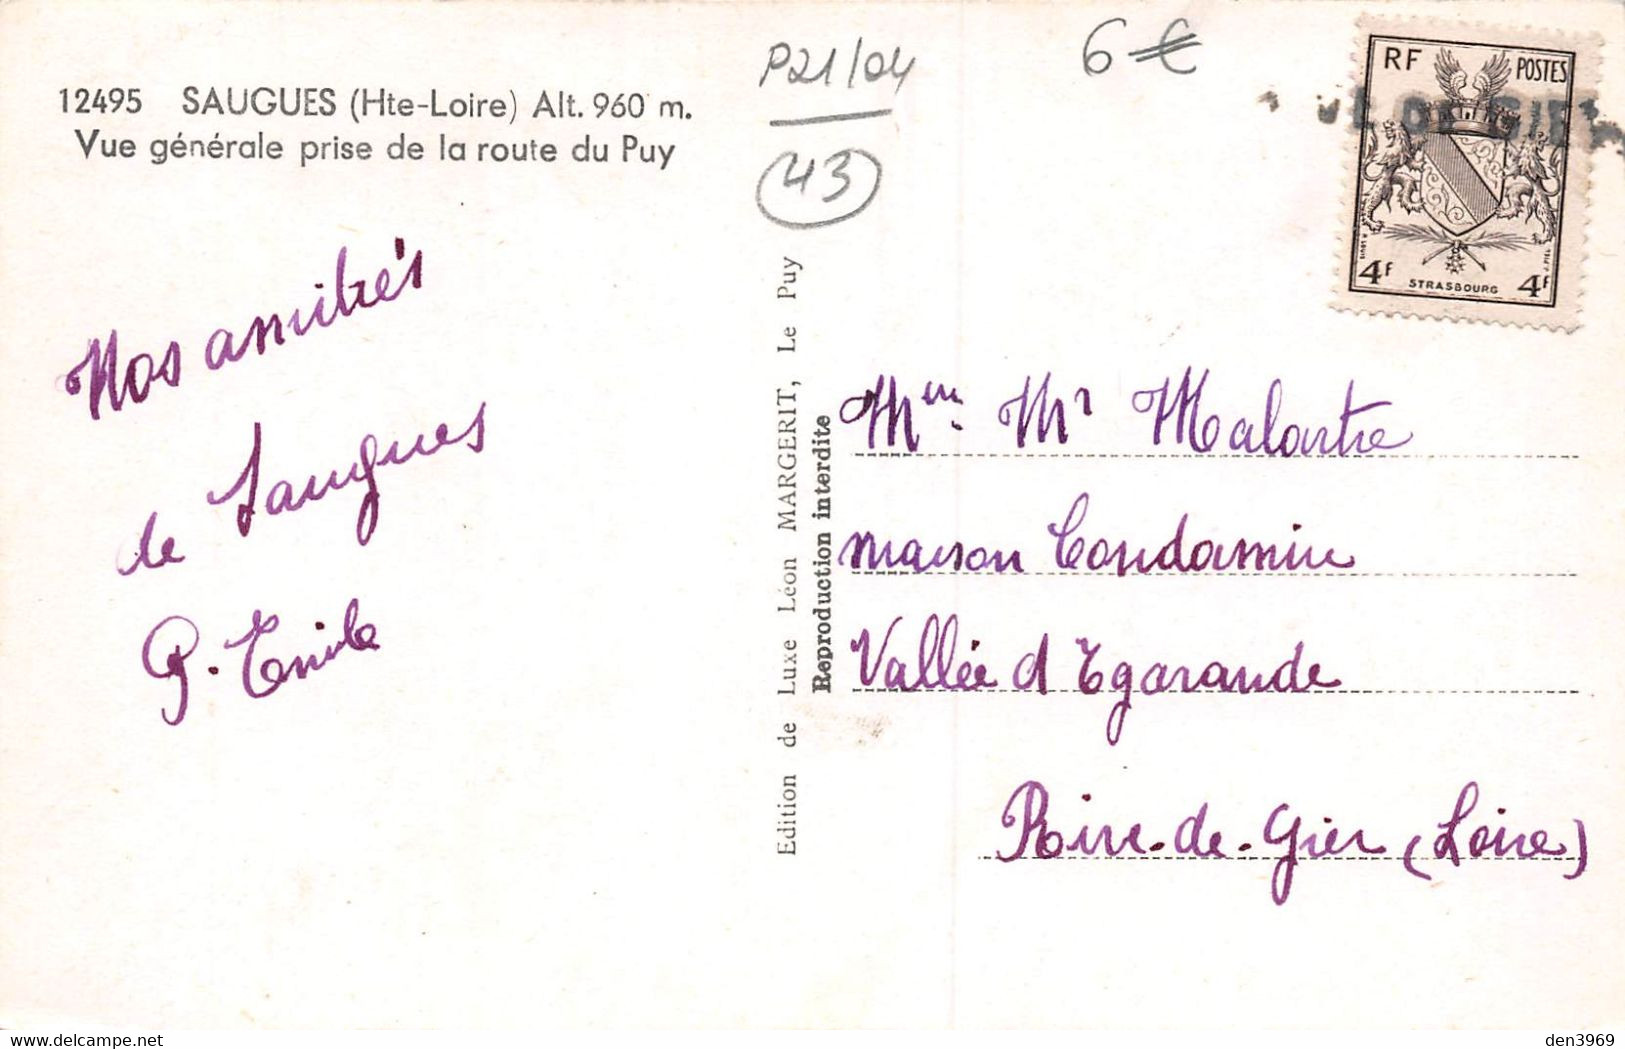 12495 SAUGUES (Hte-Loire) Alt. 960 m.
Vue générale prise de la route du Puy
P21/04
43
6 €
RF POSTES
4F STRASBOURG 4F
Nos amitiés
de Saugues
G. Emile
Edition de Luxe Léon MARGERIT, Le Puy
Reproduction interdite
Mme Mr Malartre
maison Condamin
Vallée d Egarande
Rive-de-Gier (Loire)
delcampe.net
den3969